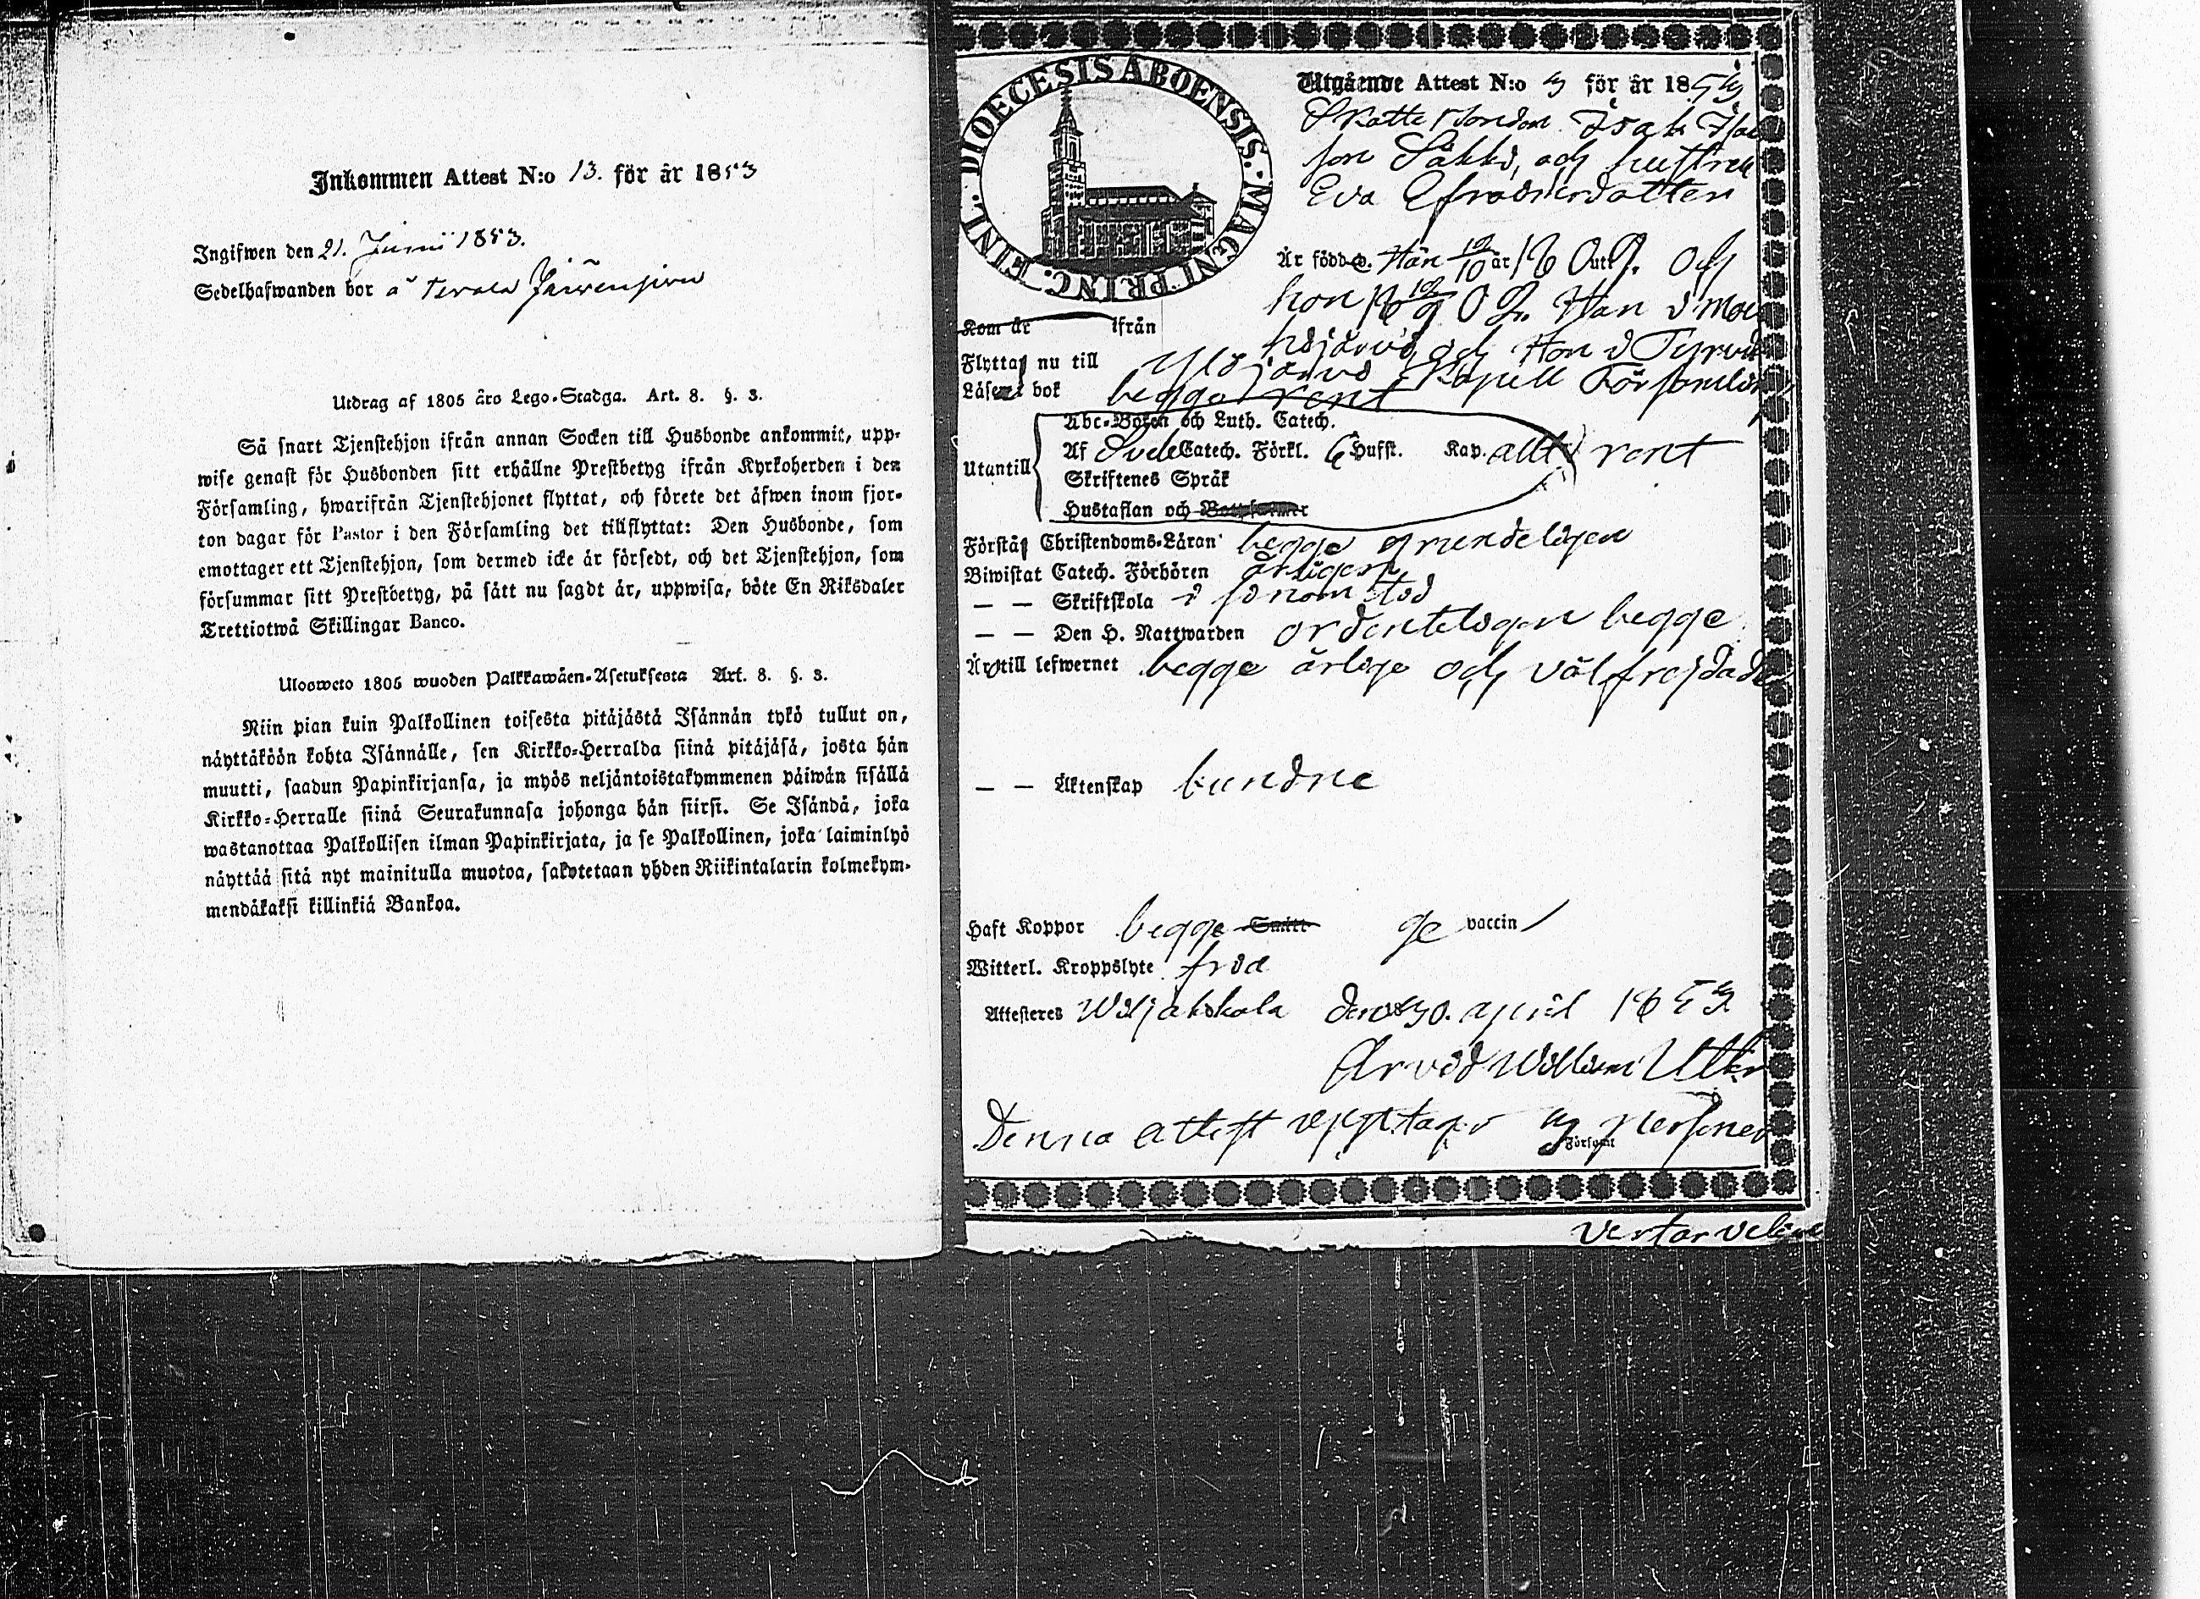 Inkommen Attest N:o 13. för år 1853
Ingifwen den 21. Junii 1853.
Sedelhafwanden bor å
Utdrag af 1805 års Lego-Stadga. Art. 8. §. 3.
Så snart Tjenstehjon ifrån annan Socken till Husbonde ankommit, upp-
wise genast för Husbonden sitt erhållne Prestbetyg ifrån Kyrkoherden i den
Församling, hwarifrån Tjenstehjonet flyttat, och förete det äfwen inom fjor-
ton dagar för Pastor i den Församling det tillflyttat: Den Husbonde, som
emottager ett Tjenstehjon, som dermed icke är försedt, och det Tjenstehjon, som
försummar sitt Prestbetyg, på sätt nu sagdt är, uppwisa, böte En Riksdaler
Trettiotwå Skillingar Banco.
Ulosweto 1805 wuoden Palkkawäen-Asetuksesta Art. 8. §. 3.
Niin pian kuin Palkollinen toisesta pitäjästä Isännän tykö tullut on,
näyttäköön kohta Isännälle, sen Kirkko-Herralda siinä pitäjäsä, josta hän
muutti, saadun Papinkirjansa, ja myös neljäntoistakymmenen päiwän sisällä
Kirkko-Herralle siinä Seurakunnasa johonga hän siirsi. Se Isändä, joka
wastanottaa Palkollisen ilman Papinkirjata, ja se Palkollinen, joka laiminlyö
näyttää sitä nyt mainitulla muotoa, sakotetaan yhden Riikintalarin kolmekym-
mendäkaksi killinkiä Bankoa.
DIOECESIS ABOENSIS. MAGNI PRINC. FINL.
Utgående Attest N:o 3 för år 1853
Skattebonden Isak Isac
son Säkki, och hustru
Eva Efraimsdotter
Är född Han 12/10 år 1809. och
hon 18 12/9 09. Han i Mou
hijärvi, och Hon i Tyrvis
Kom år ifrån
Flytta nu till Ylöjärvi Kapell Församling
Läser i bok begge rent
Utantill
Abc-Boken och Luth. Catech.
Af Catech. Förkl. Hufst. Kap. allt rent
Skriftenes Språk
Hustaflan och
Förstå Christendoms-Läran begge grundeligen
Biwistat Catech. Förhören årligen
— — Skriftskola i sinom tid
— — Den H. Nattwarden ordenteligen begge
Är till lefwernet begge ärlige och välfrejdade
— — Äktenskap bundne
Haft Koppor begge ge vaccin
Witterl. Kroppslyte fria
Attesteres Wiljakkala den 30. april 1853
Arvid Willium
Denna attest upptager 3 personer
Församl